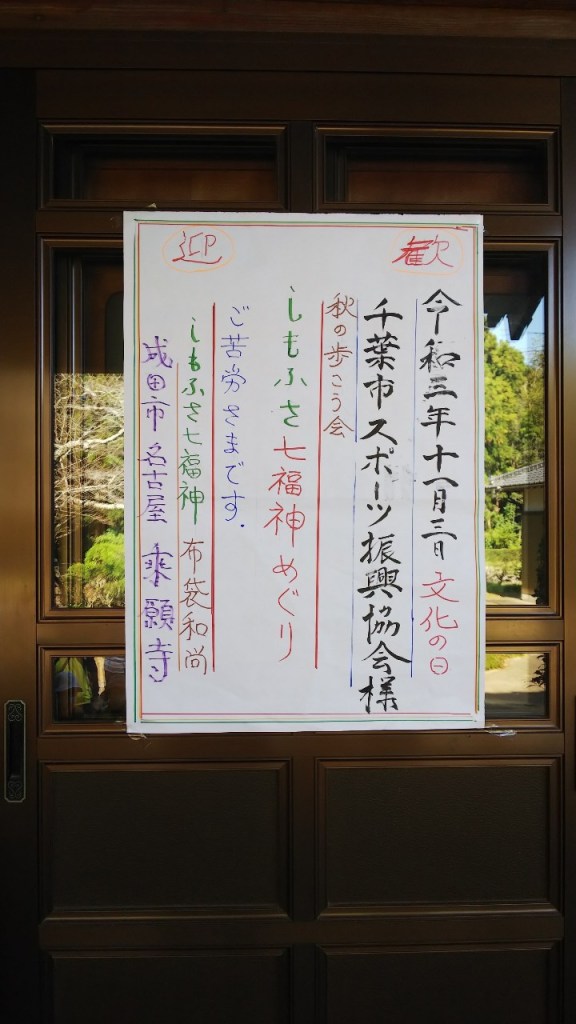 歓迎
令和三年十一月三日文化の日
千葉市スポーツ振興協会様
秋の歩こう会
しもふさ七福神めぐり
ご苦労さまです.
しもふさ七福神 布袋和尚
成田市名古屋 乗願寺